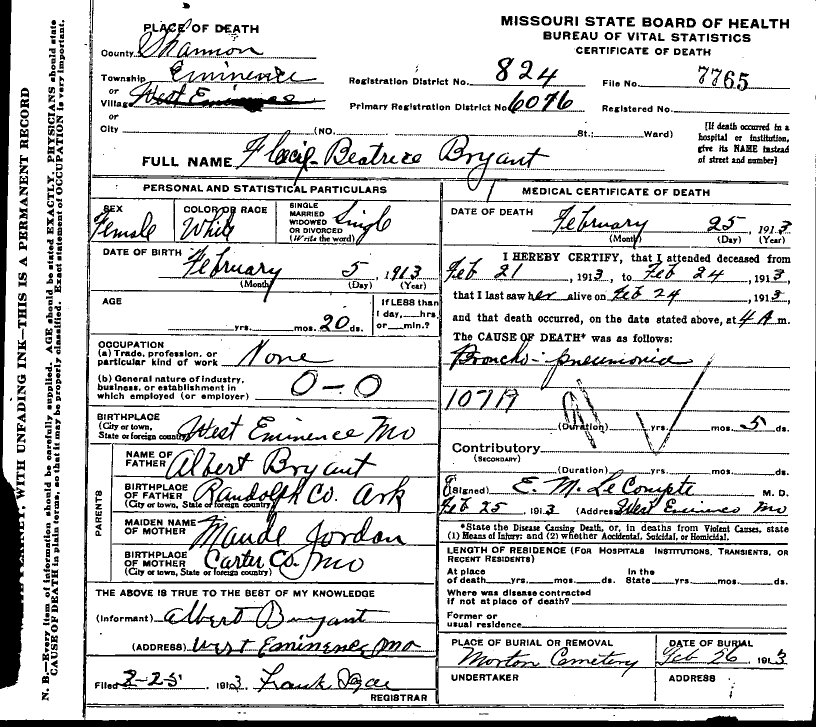 MISSOURI STATE BOARD OF HEALTH
BUREAU OF VITAL STATISTICS
CERTIFICATE OF DEATH
PLACE OF DEATH
County Shannon
Township Eminence
or
Village West Eminence
or
City (NO. St.; Ward)
Registration District No. 824 File No. 7765
Primary Registration District No. 6076 Registered No.
[If death occurred in a
hospital or institution,
give its NAME instead
of street and number]
FULL NAME Beatrice Bryant
PERSONAL AND STATISTICAL PARTICULARS
SEX Female
COLOR OR RACE White
SINGLE
MARRIED
WIDOWED
OR DIVORCED
(Write the word) Single
DATE OF BIRTH February 5, 1913
(Month) (Day) (Year)
AGE
yrs. mos. 20 ds.
If LESS than
1 day, hrs.
or min.?
OCCUPATION
(a) Trade, profession, or
particular kind of work None
(b) General nature of industry,
business, or establishment in
which employed (or employer) 0-0
BIRTHPLACE
(City or town,
State or foreign country) West Eminence Mo
PARENTS
NAME OF
FATHER Albert Bryant
BIRTHPLACE
OF FATHER Randolph Co. Ark
(City or town, State or foreign country)
MAIDEN NAME
OF MOTHER Maude Jordon
BIRTHPLACE
OF MOTHER Carter Co. Mo
(City or town, State or foreign country)
THE ABOVE IS TRUE TO THE BEST OF MY KNOWLEDGE
(Informant) Albert Bryant
(ADDRESS) West Eminence, Mo
Filed 2-25, 1913 Frank
REGISTRAR
MEDICAL CERTIFICATE OF DEATH
DATE OF DEATH February 25, 1913
(Month) (Day) (Year)
I HEREBY CERTIFY, that I attended deceased from
Feb 21, 1913, to Feb 24, 1913,
that I last saw her alive on Feb 24, 1913,
and that death occurred, on the date stated above, at 4 A m.
The CAUSE OF DEATH* was as follows:
Broncho-pneumonia
107A
(Duration) yrs. mos. 5 ds.
Contributory
(SECONDARY)
(Duration) yrs. mos. ds.
(Signed) E. M. Le Compte M. D.
Feb 25, 1913 (Address) West Eminence Mo
*State the Disease Causing Death, or, in deaths from Violent Causes, state
(1) Means of Injury; and (2) whether Accidental, Suicidal, or Homicidal.
LENGTH OF RESIDENCE (FOR HOSPITALS, INSTITUTIONS, TRANSIENTS, OR
RECENT RESIDENTS)
At place
of death yrs. mos. ds.
In the
State yrs. mos. ds.
Where was disease contracted
if not at place of death?
Former or
usual residence
PLACE OF BURIAL OR REMOVAL
Morton Cemetery
DATE OF BURIAL
Feb 26 1913
UNDERTAKER
ADDRESS
WITH UNFADING INK—THIS IS A PERMANENT RECORD
N. B.—Every item of information should be carefully supplied. AGE should be stated EXACTLY. PHYSICIANS should state
CAUSE OF DEATH in plain terms, so that it may be properly classified. Exact statement of OCCUPATION is very important.